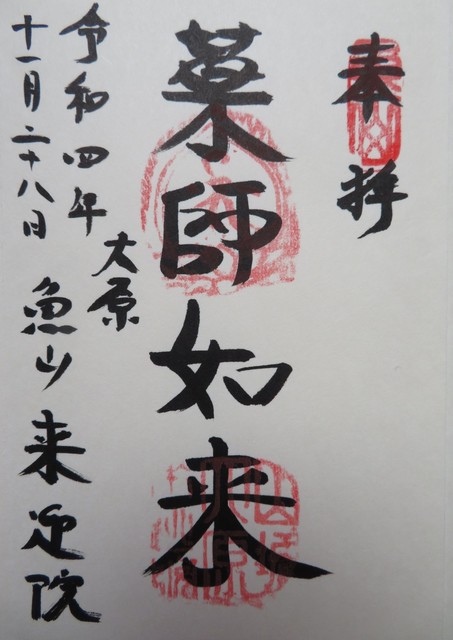 奉拝
薬師如来
大原
令和四年
十一月二十八日
魚山来迎院